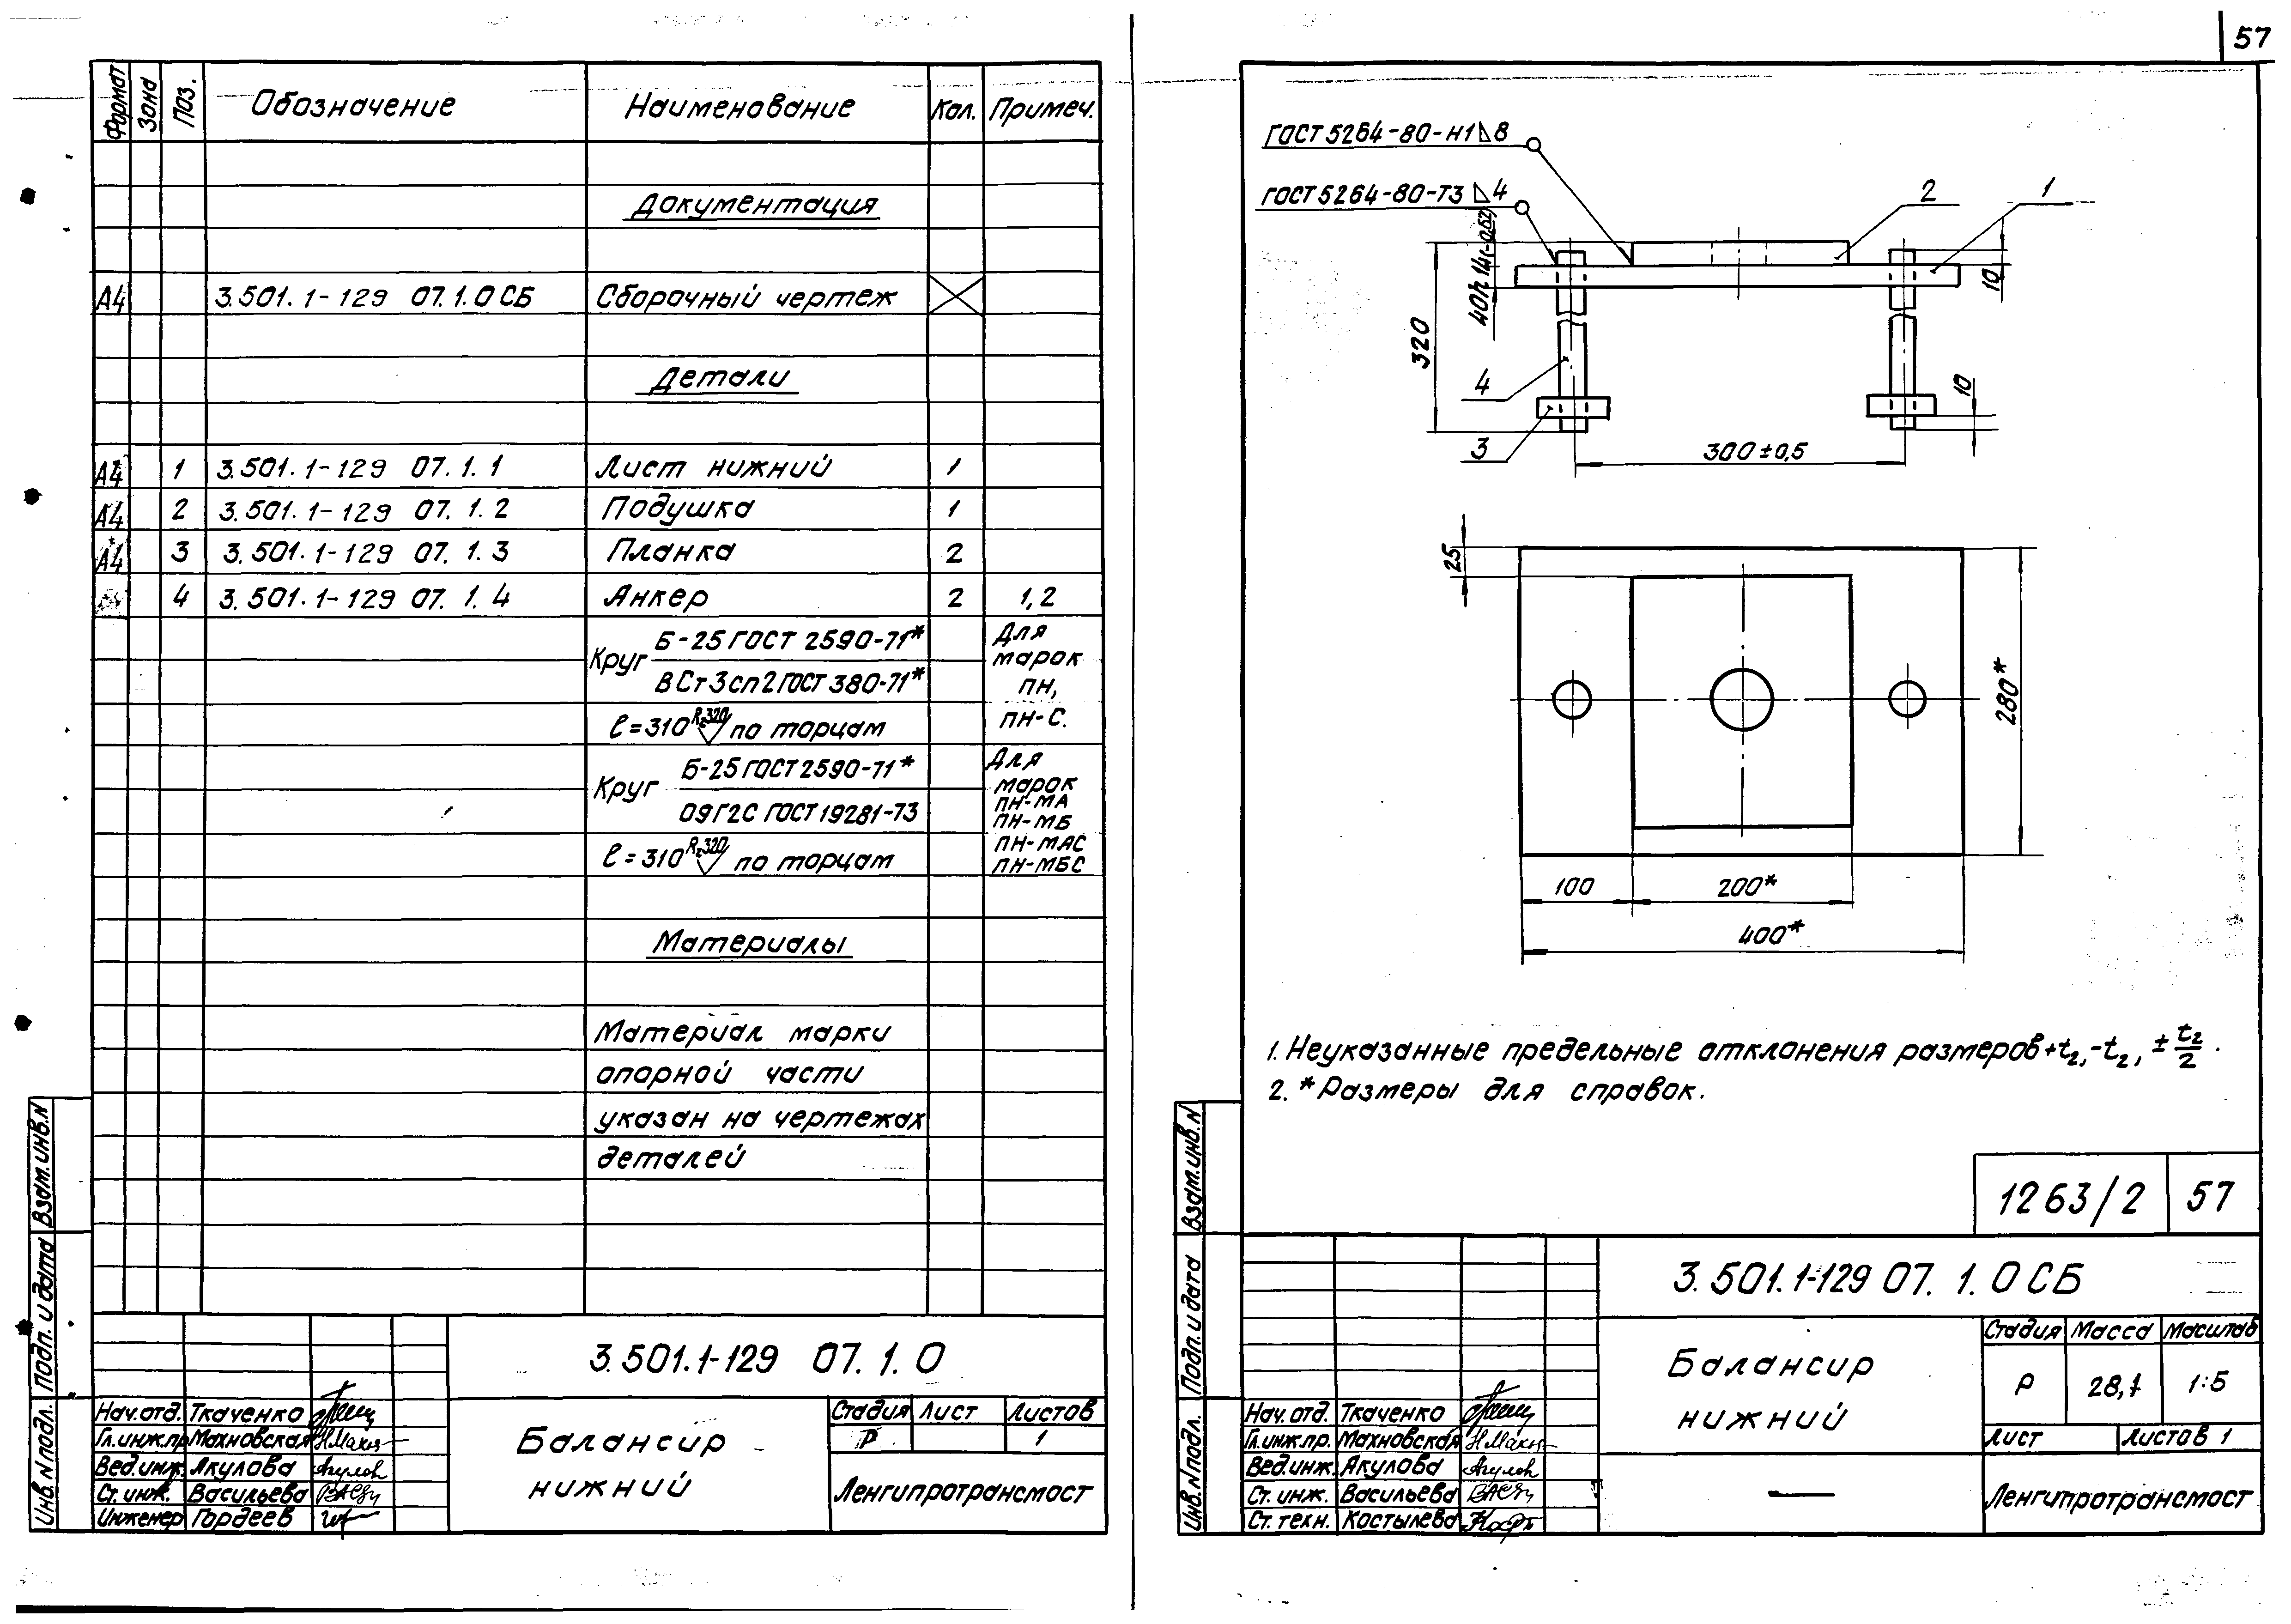 57
Формат Зона Поз. Обозначение Наименование Кол. Примеч.
Документация
А4 3.501.1-129 07.1.0 СБ Сборочный чертеж
Детали
А4 1 3.501.1-129 07.1.1 Лист нижний 1
А4 2 3.501.1-129 07.1.2 Подушка 1
А4 3 3.501.1-129 07.1.3 Планка 2
4 3.501.1-129 07.1.4 Анкер 2 1,2
Круг Б-25 ГОСТ 2590-71* Для
ВСт3сп2 ГОСТ 380-71* марок
ПН,
ℓ=310 Rz320 по торцам ПН-С.
Круг Б-25 ГОСТ 2590-71* Для
марок
ПН-МА
09Г2С ГОСТ 19281-73 ПН-МБ
ПН-МАС
ℓ=310 Rz320 по торцам ПН-МБС
Материалы
Материал марки
опорной части
указан на чертежах
деталей
Взам.инв.N
Подп. и дата
Инв.N подл.
3.501.1-129 07.1.0
Нач.отд. Ткаченко
Гл.инж.пр. Махновская
Вед.инж. Якулова
Ст.инж. Васильева
Инженер Гордеев
Балансир
нижний
Стадия Лист Листов
Р 1
Ленгипротрансмост
ГОСТ 5264-80-Н1 ⊿8
ГОСТ 5264-80-Т3 ⊿4
2
1
40h14(-0,62)
320
10
4
3
10
300±0,5
25
280*
100
200*
400*
1. Неуказанные предельные отклонения размеров +t2, -t2, ± t2/2.
2. * Размеры для справок.
1263/2 57
Взам.инв.N
Подп. и дата
Инв.N подл.
3.501.1-129 07.1.0 СБ
Балансир
нижний
Стадия Масса Масштаб
Р 28,1 1:5
Лист Листов 1
Нач.отд. Ткаченко
Гл.инж.пр. Махновская
Вед.инж. Якулова
Ст.инж. Васильева
Ст.техн. Костылева
—
Ленгипротрансмост